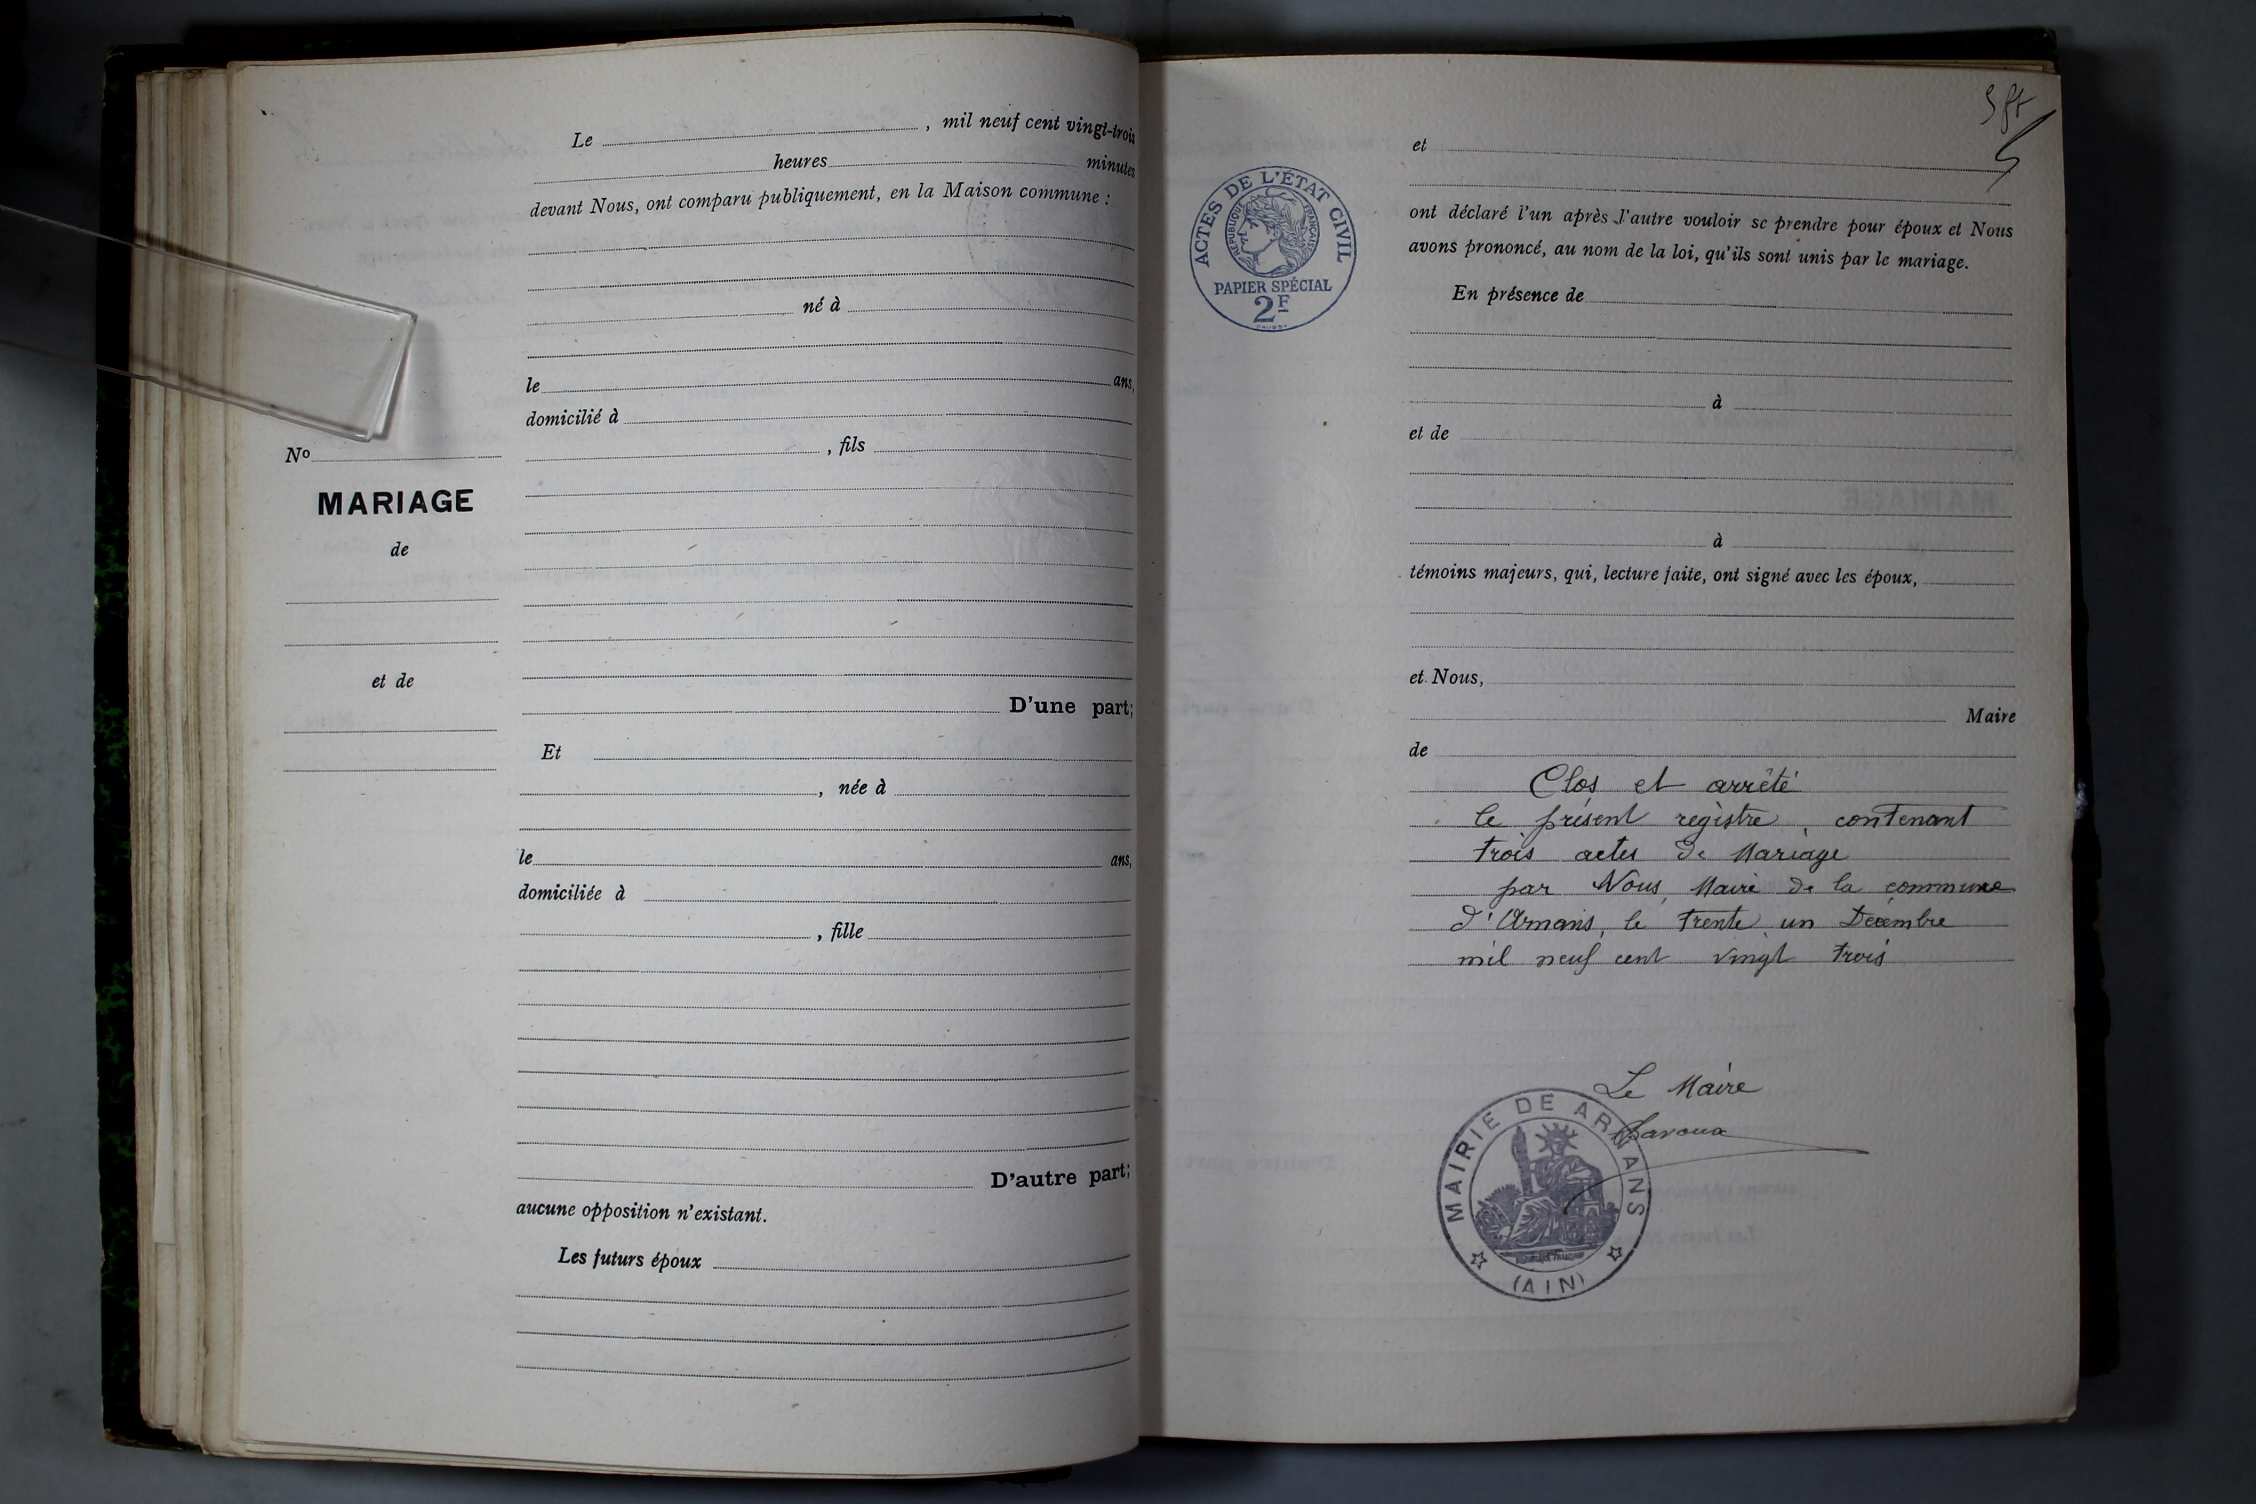 Le , mil neuf cent vingt-trois
heures minutes
devant Nous, ont comparu publiquement, en la Maison commune :
né à
le ans,
domicilié à
, fils
D'une part;
Et
, née à
le ans,
domiciliée à
, fille
D'autre part;
aucune opposition n'existant.
Les futurs époux
No
MARIAGE
de
et de
ACTES DE L'ÉTAT CIVIL
RÉPUBLIQUE FRANÇAISE
PAPIER SPÉCIAL
2F
et
ont déclaré l'un après l'autre vouloir se prendre pour époux et Nous
avons prononcé, au nom de la loi, qu'ils sont unis par le mariage.
En présence de
à
et de
à
témoins majeurs, qui, lecture faite, ont signé avec les époux,
et Nous,
Maire
de
Clos et arrêté
le présent registre, contenant
trois actes de Mariage
par Nous, Maire de la commune
d'Arnans, le trente un Décembre
mil neuf cent vingt trois
Le Maire
MAIRIE DE ARNANS
(AIN)